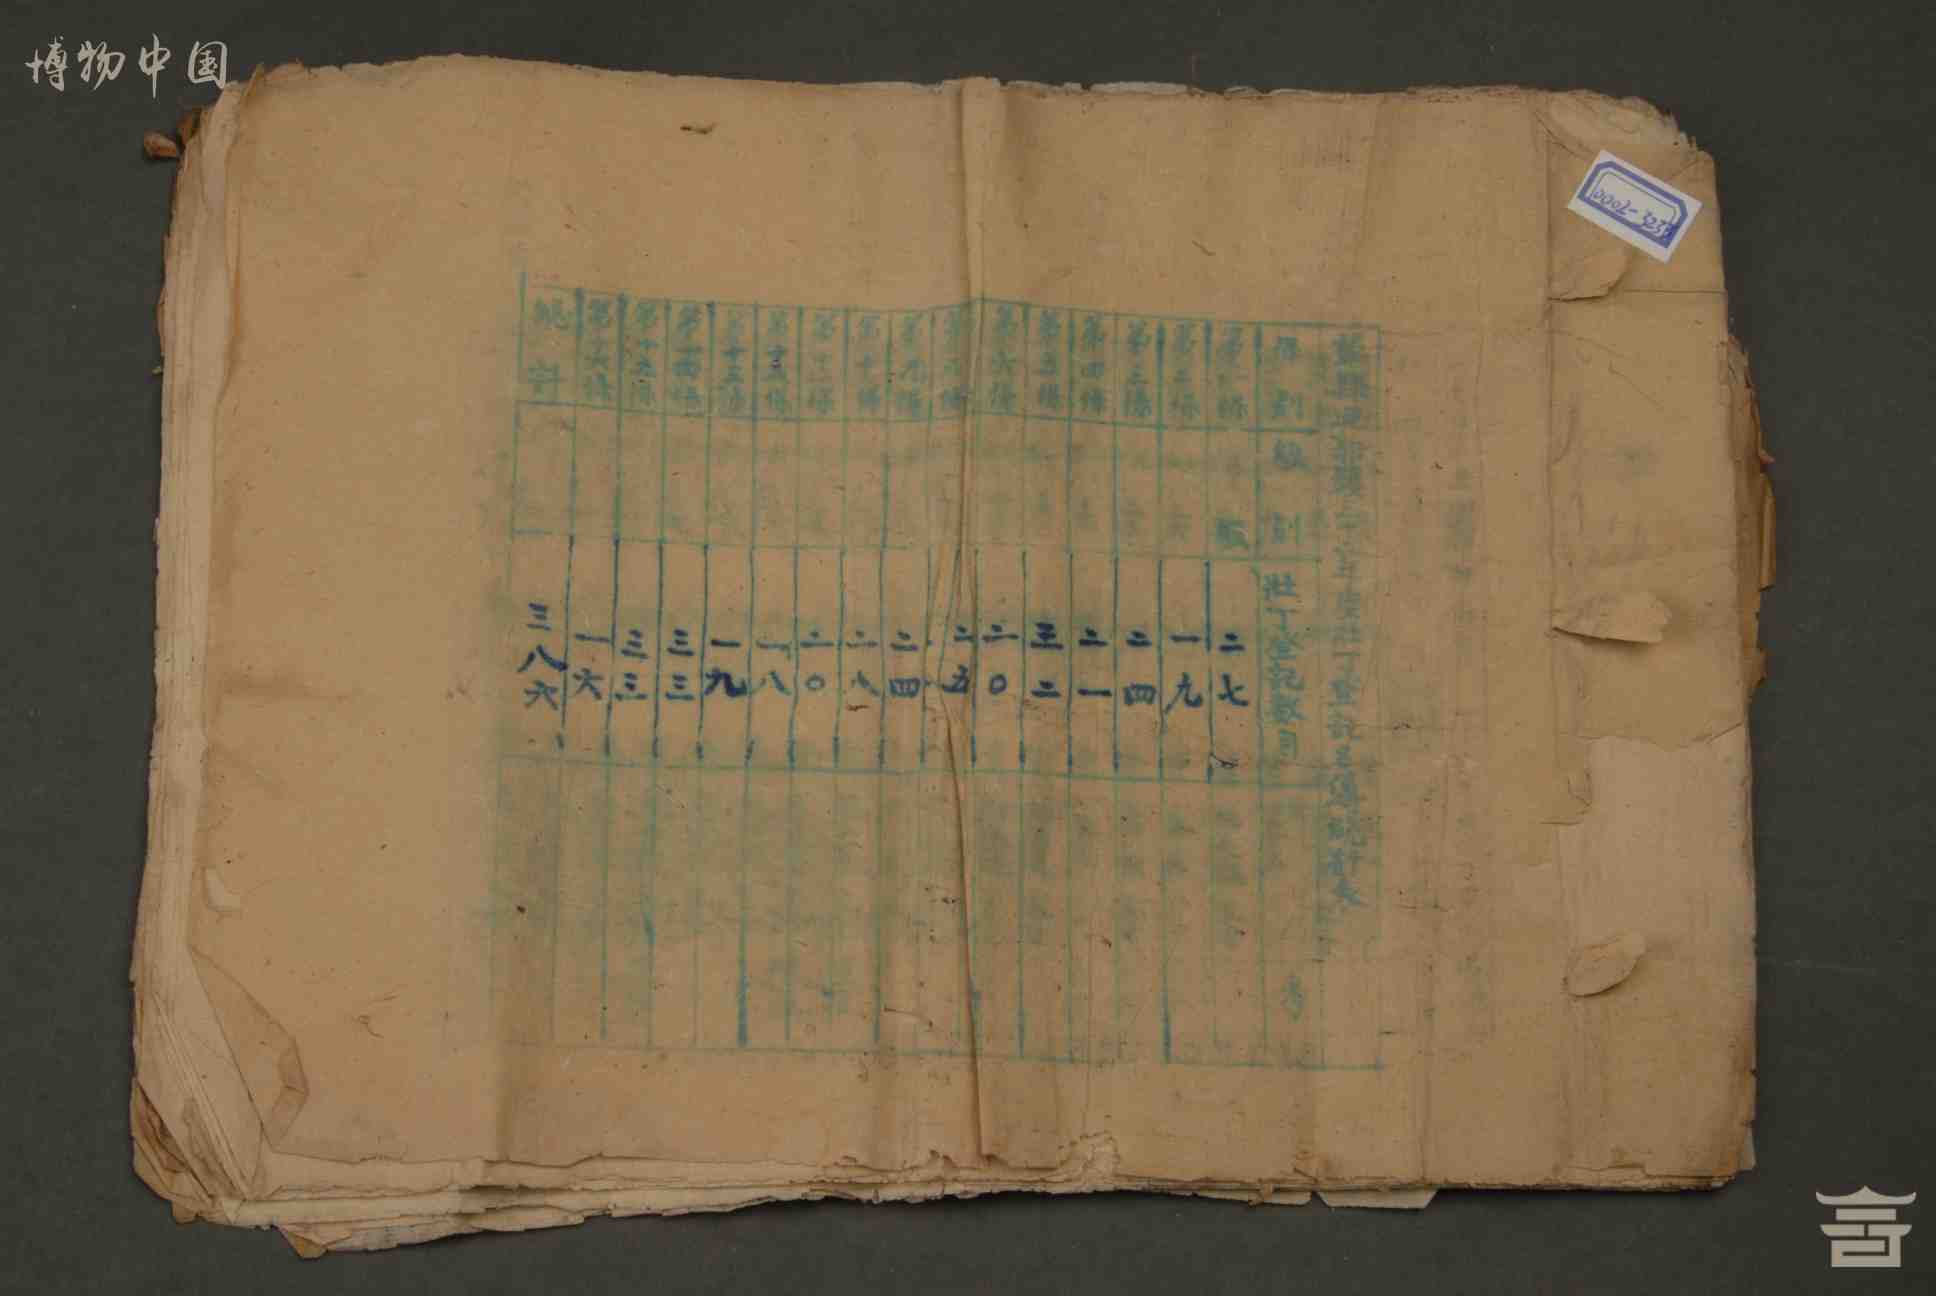 博物中国
年度壯丁登記
保別 級別 壯丁登記數目 考
第一保 二七
第二保 一九
第三保 二四
第四保 二一
第五保 三二
第六保 二〇
保 二五
第九保 二四
第十保 二八
第十一保 二〇
第十二保 一八
第十三保 一九
第十四保 三三
第十五保 三三
第十六保 一六
總計 三八六